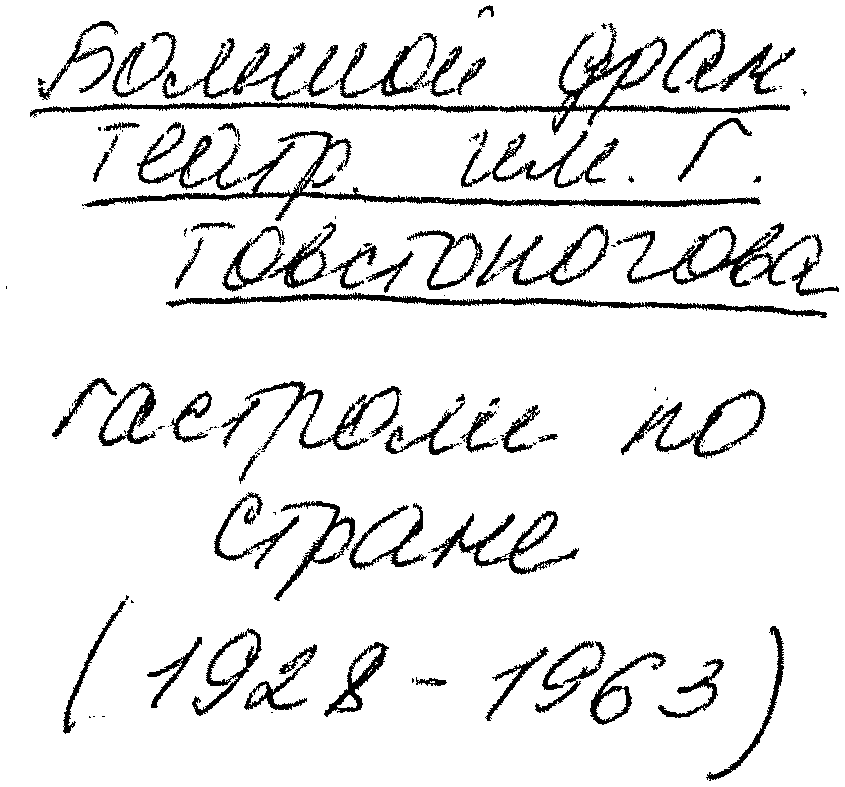 Большой драм.
театр. им. Г.
Товстоногова
гастроли по
стране
(1928-1963)